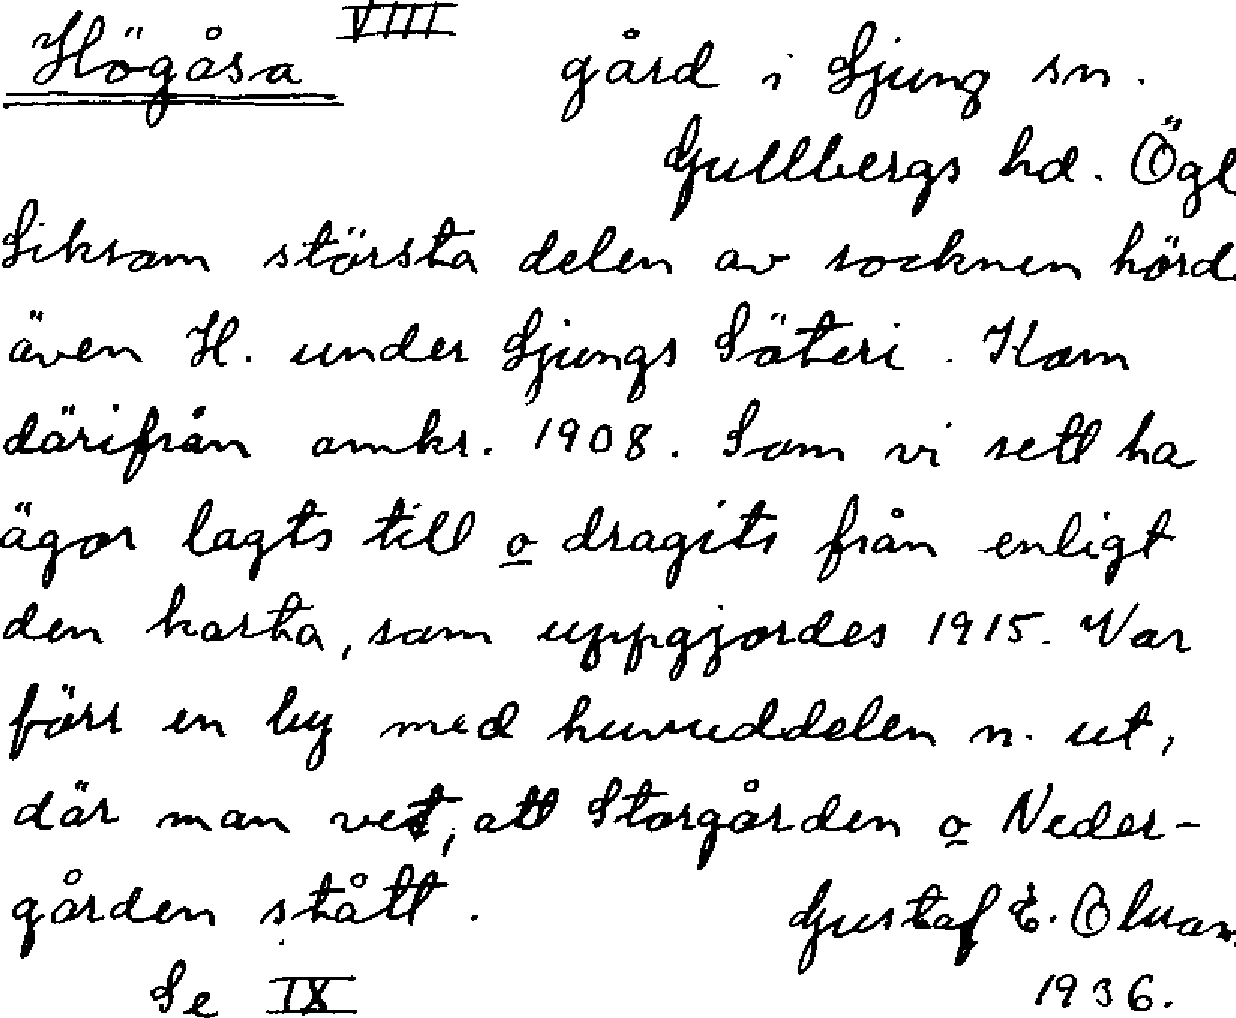 Högåsa VIII gård i Ljung sn.
Gullbergs hd. Ögl
Liksom största delen av socknen hörd
även H. under Ljungs Säteri. Kom
därifrån omkr. 1908. Som vi sett ha
ägor lagts till o dragits från enligt
den karta, som uppgjordes 1915. Var
förr en by med huvuddelen n. ut,
där man vet, att Storgården o Neder-
gården stått. Gustaf E.
Se IX 1936.